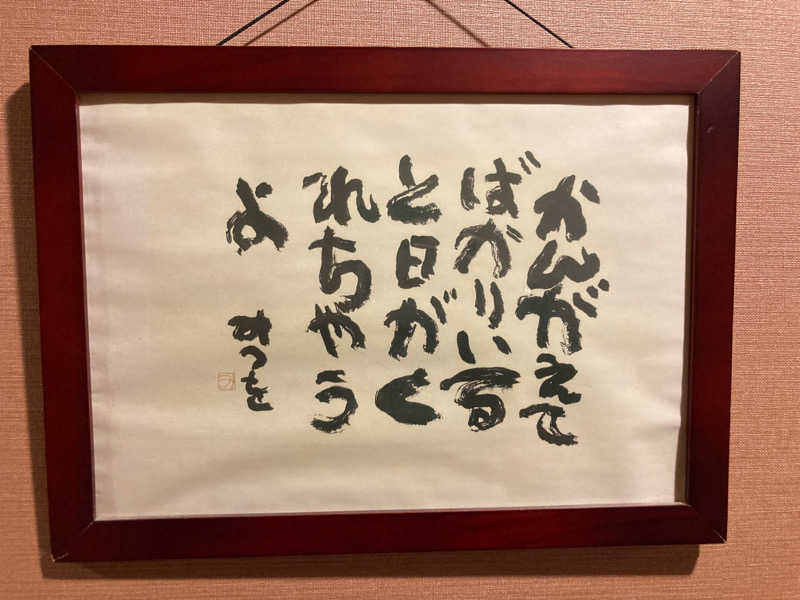 かんがえて
ばかりいる
と日がく
れちゃう
よ
みつを